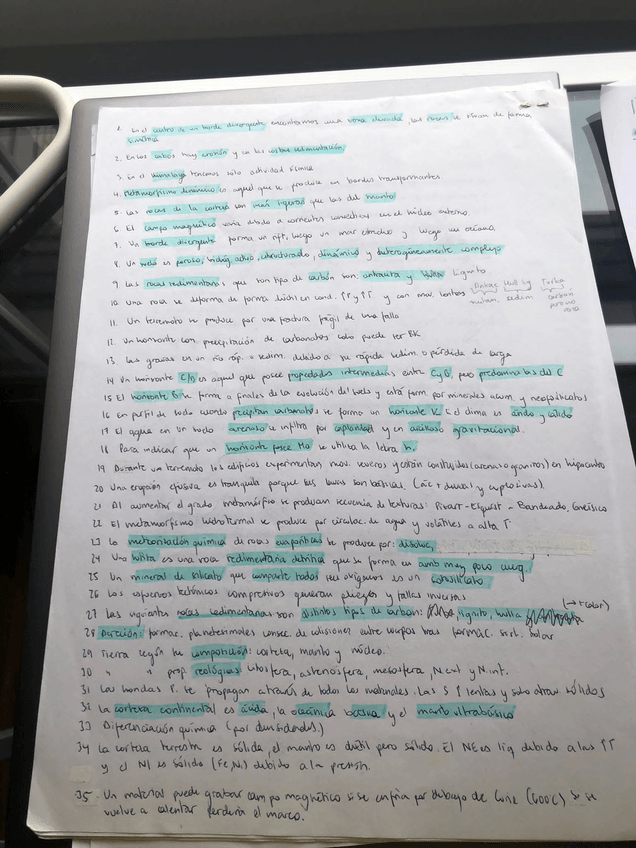 1. En el centro de un borde divergente encontramos una zona elevada, las rocas se sitúan de forma
simétrica
2. En los cabos hay erosión y en las costas sedimentación
3. En el Himalaya tenemos solo actividad sísmica
4. Metamorfismo dinámico es aquel que se produce en bordes transformantes.
5. Las rocas de la corteza son más ligeras que las del manto
6. El campo magnético varia debido a corrientes convectivas en el núcleo externo.
7. Un borde divergente forma un rift, luego un mar estrecho y luego un océano
8. Un suelo es poroso, activo, estructurado, dinámico y heterogéneamente complejo
9. Las rocas sedimentarias que son tipo de carbón son: antracita y hulla Lignito.
10. Una roca se deforma de forma dúctil en cond. ↑T y ↑P y con mov. lentos
metam. sedim. carbon
11. Un terremoto se produce por una fractura frágil de una falla
12. Un horizonte con precipitación de carbonatos solo puede ser BK
13. Las gravas en un río ráp. sedim. debido a su rápida sedim. o pérdida de carga
14. Un horizonte C/O es aquel que posee propiedades intermedias entre C y O, pero predominan las del C
15. El horizonte B se forma a finales de la evolución del suelo y está form. por minerales acum. y neofilicatos
16. En perfil de suelo cuando precipitan carbonatos se forma un horizonte K si el clima es árido y cálido
17. El agua en un suelo arenoso se infiltra por capilaridad y en arcilloso gravitacional.
18. Para indicar que un horizonte posee MO se utiliza la letra h.
19. Durante un terremoto los edificios experimentan mov. severos y están construidos (arena o granitos) en hipocentro
20. Una erupción efusiva es tranquila porque sus lavas son básicas. (ác + densa y explosivas).
21. Al aumentar el grado metamórfico se producen secuencia de texturas: Pizarr - Esquist - Bandeado, Gneísico
22. El metamorfismo hidrotermal se produce por circulac. de agua y volátiles a alta T
23. La meteorización química de rocas evaporíticas se produce por: disoluc,
24. Una lutita es una roca sedimentaria detrítica que se forma en amb muy poco energ.
25. Un mineral de silicato que comparte todos sus oxígenos es un
26. Los esfuerzos tectónicos compresivos generan pliegues y fallas inversas
(→ + calor)
27. Las siguientes rocas sedimentarias son distintos tipos de carbon: lignito, hulla
28. Acreción: formac. planetesimales consec. de colisiones entre cuerpos tras formac. sist. solar
29. Tierra según su composición: corteza, manto y núcleo.
30. " " prop. reológias: litosfera, astenosfera, mesosfera, N ext y N int.
31. Las hondas P. se propagan a través de todos los materiales. Las S ↑ lentas y solo atrav. sólidos
32. La corteza continental es ácida, la oceánica básica y el manto ultrabásico
33. Diferenciación química (por densidades.)
34. La corteza terrestre es sólida, el manto es dúctil pero sólido. El NE es liq debido a las ↑T
y el NI es sólido (Fe, Ni) debido a la presión.
35. Un material puede grabar campo magnético si se enfría por debajo de Curie (600°C) si se
vuelve a calentar perderá el marco.